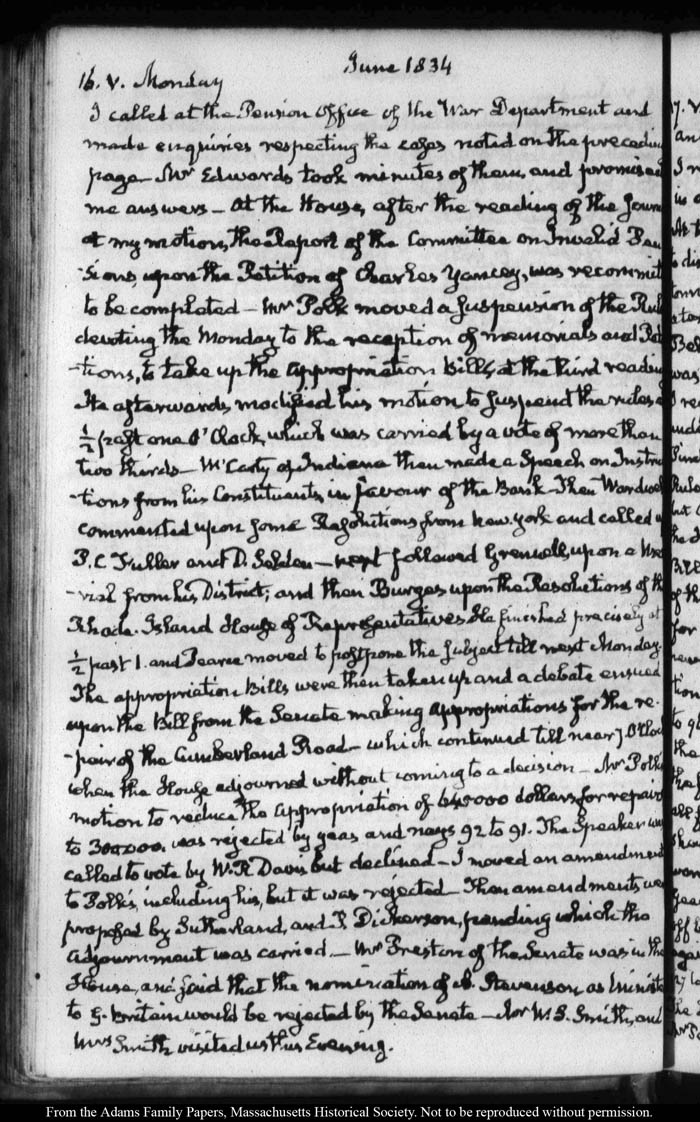 June 1834
16. V. Monday
I called at the Pension Office of the War Department and
made enquiries respecting the cases noted on the preceding
page — Mr Edwards took minutes of them, and promised
me answers — At the House, after the reading of the Jour
at my motion, the Report of the Committee on Invalid Pen
-sions, upon the Petition of Charles Yancey, was recommit
to be completed — Mr Polk moved a suspension of the Rul
devoting the Monday to the reception of memorials and Peti
-tions, to take up the appropriation bills, at the third reading
He afterwards, modified his motion to suspend the rules
½ past one O'Clock, which was carried by a vote of more than
two thirds — McCarty of Indiana then made a Speech on Instru
-tions from his Constituents, in favour of the Bank — Then Wardwell
commented upon some Resolutions from New-York and called
P. C. Fuller and D. Selden — next followed Grennell, upon a Me
-rial from his District; and then Burges upon the Resolutions of th
Rhode-Island House of Representatives He finished precisely at
½ past 1. and Pearce moved to postpone the subject till next Monday.
The appropriation bills were then taken up and a debate ensued
upon the Bill from the Senate making appropriations for the re-
-pair of the Cumberland Road — which continued till near 7 O'Cloc
when the House adjourned without coming to a decision — Mr Polk's
motion to reduce the appropriation of 650000 dollars for repairs
to 300,000. was rejected by yeas and nays 92 to 91. The Speaker was
called to vote by W. R. Davis but declined — I moved an amendment
to Polk's, including his, but it was rejected — Then amendments, we
proposed by Sutherland, and P. Dickerson, pending which the
adjournment was carried — Mr Preston of the Senate was in the
House, and said that the nomination of A. Stevenson, as Ministe
to G. Britain would be rejected by the Senate — Mr W. S. Smith, and
Mrs Smith visited us this Evening.
From the Adams Family Papers, Massachusetts Historical Society. Not to be reproduced without permission.